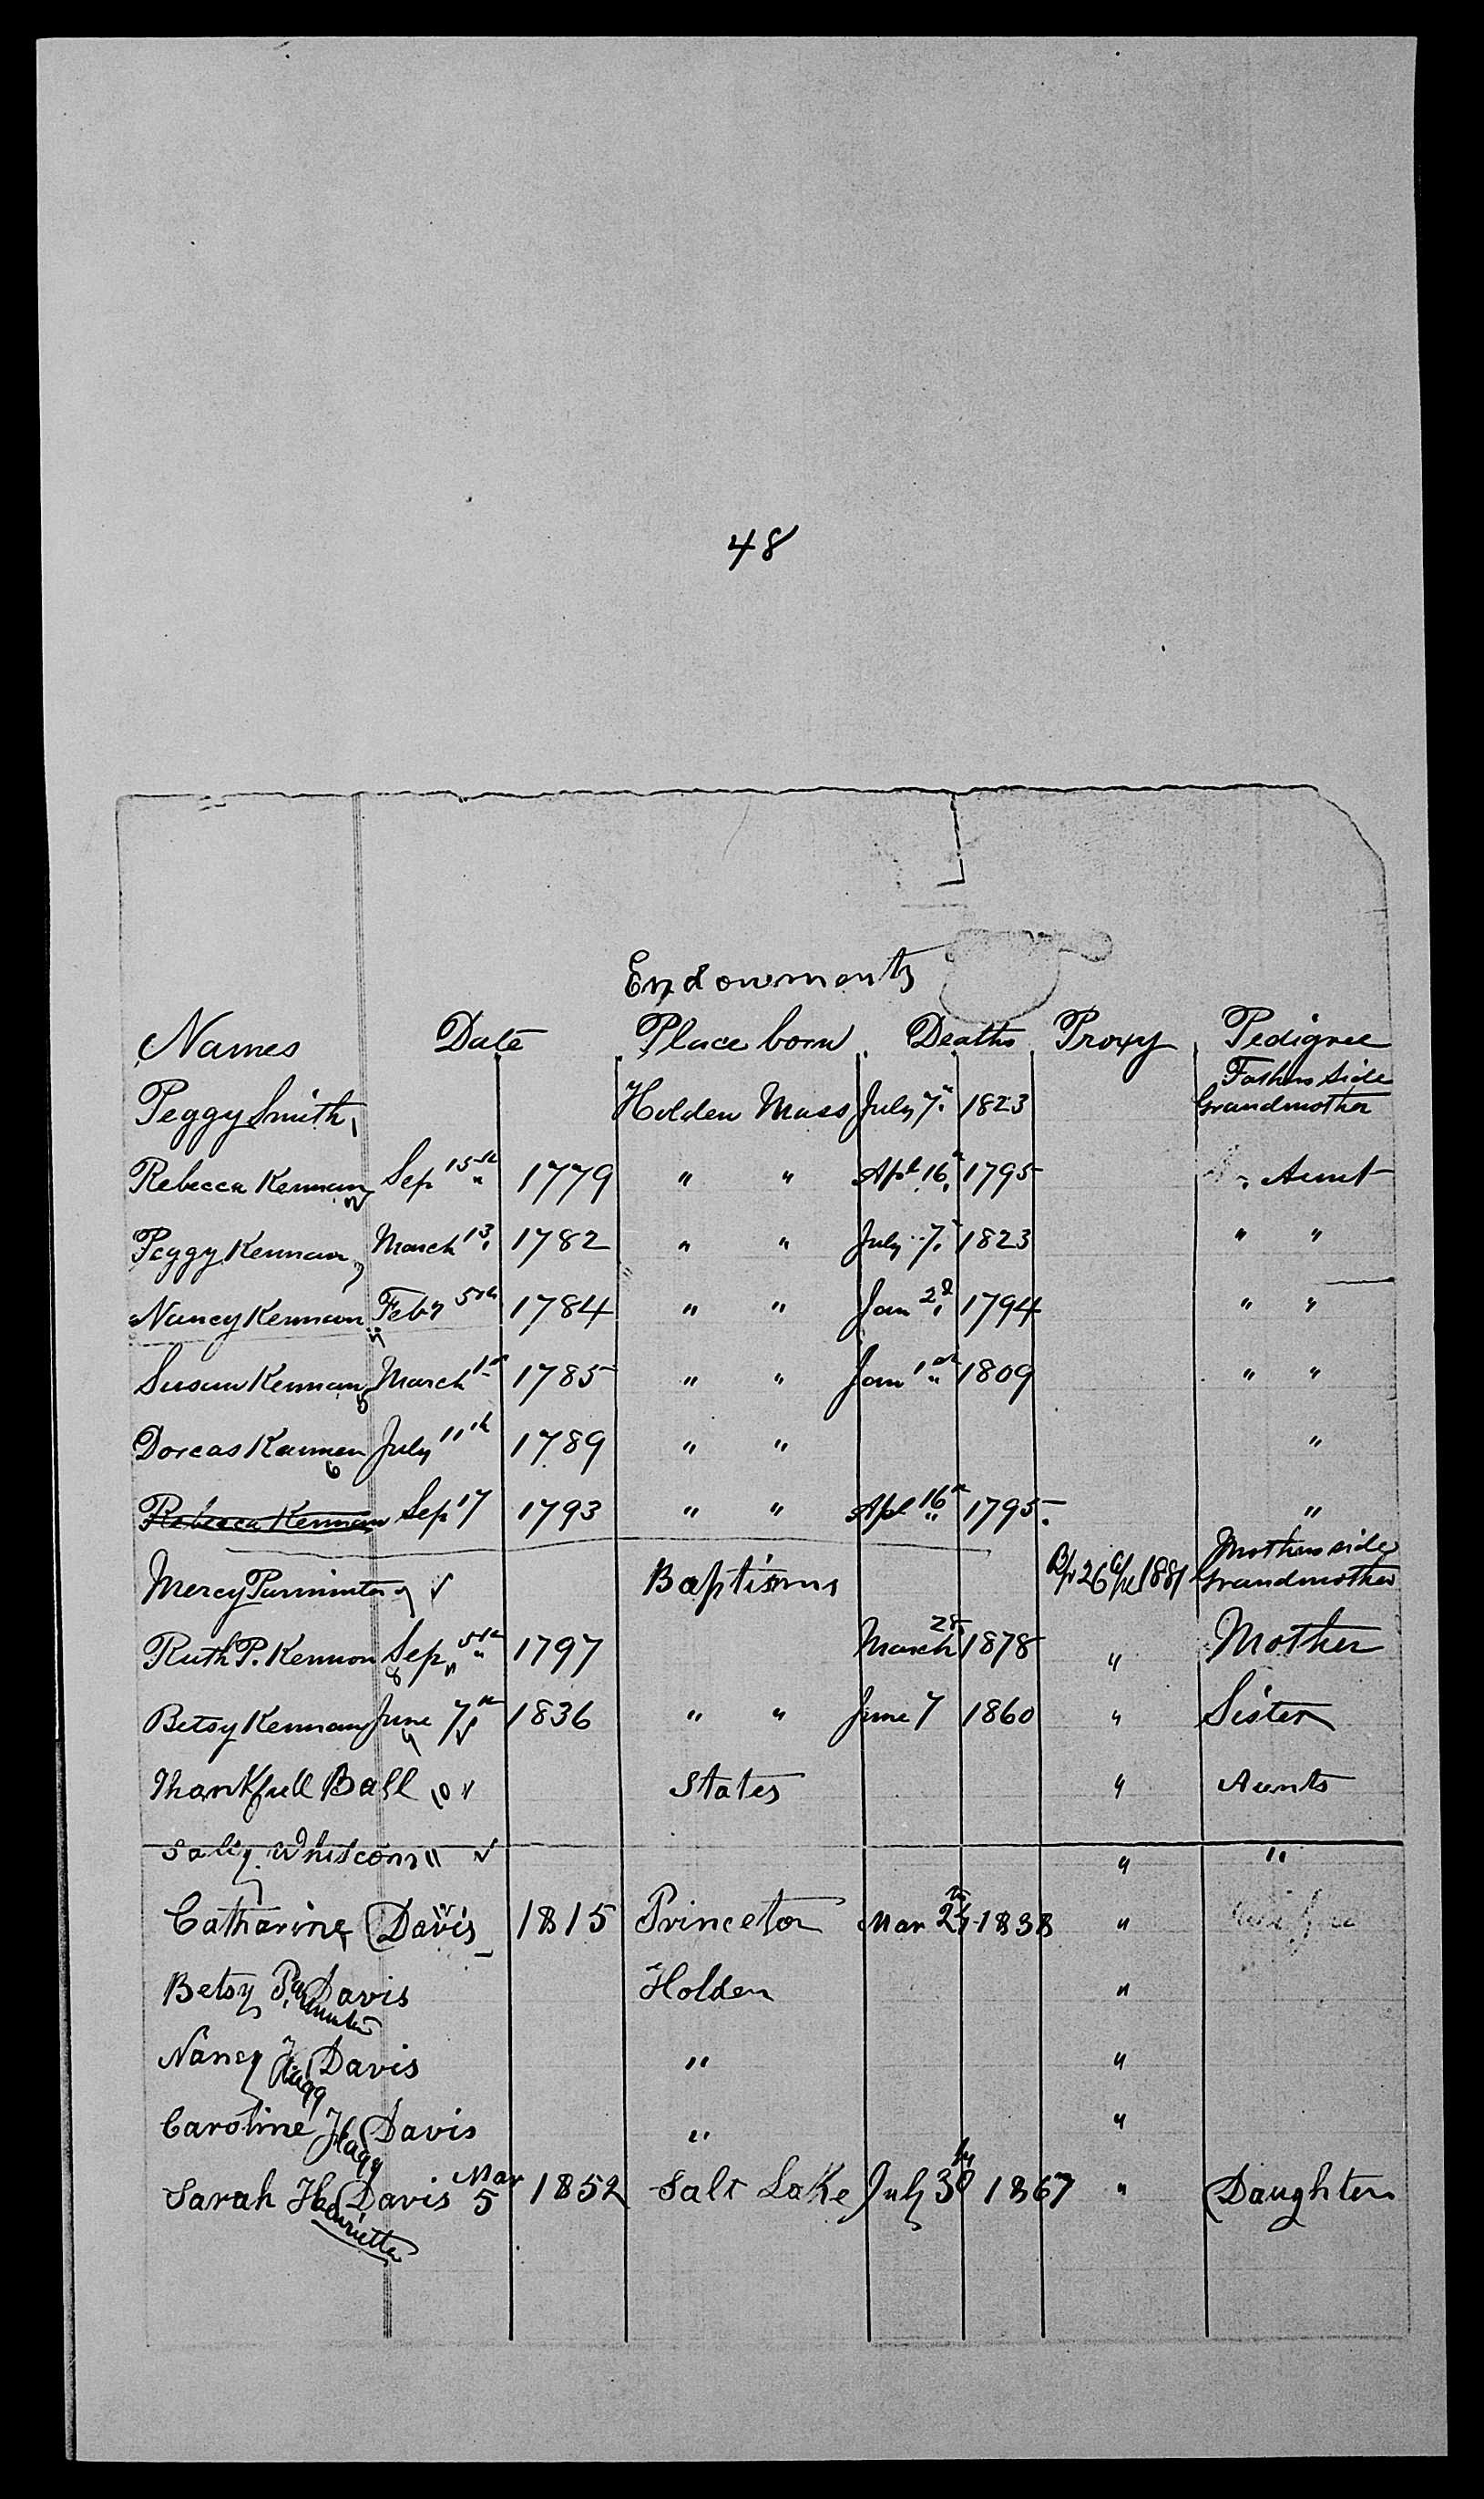 48
Endowments
Names Date Place born Deaths Proxy Pedigree
Fathers Side
Peggy Smith 1 Holden Mass July 7th 1823 Grandmother
Rebecca Kennan 2 Sep 15th 1779 " " Apl 16th 1795 " Aunt
Peggy Kennan 3 March 13 1782 " " July 7th 1823 " "
Nancy Kennan 4 Feby 5th 1784 " " Jan 2d 1794 " "
Susan Kennan 5 March 1st 1785 " " Jan 1st 1809 " "
Dorcas Kannen 6 July 11th 1789 " " "
Rebecca Kennan Sep 17 1793 " " Apl 16th 1795 "
Mothers side
Mercy Parminter 7 √ Baptisms 26 1881 Grandmother
Ruth P. Kennon 8 Sep 5th 1797 March 28 1878 " Mother
Betsy Kennan 9 June 7th √ 1836 " " June 7 1860 " Sister
Thankfull Ball 10 √ States " Aunts
Sally Whitcom 11 √ " "
Catharine Davis 1815 Princeton Mar 1838 "
Betsy Parminter Davis Holden "
Nancy Flagg Davis " "
Caroline Flagg Davis " "
Sarah Harrietta Davis Mar 5 1852 Salt Lake July 30 1867 " Daughter